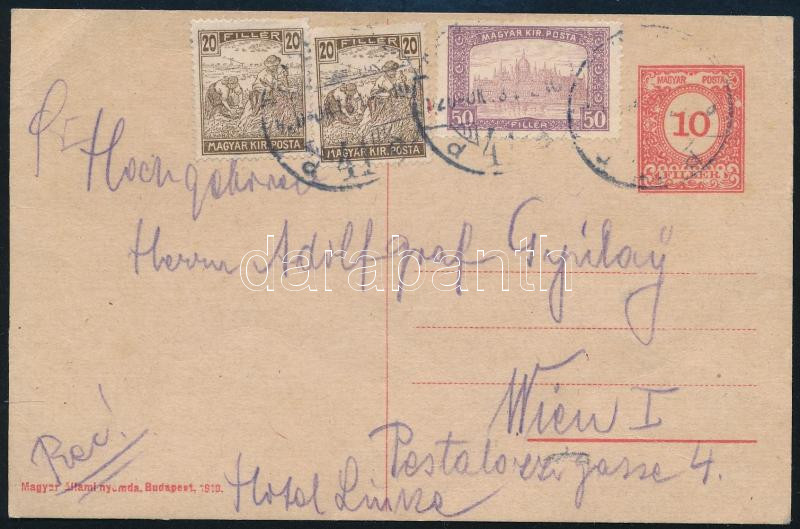 20 FILLÉR 20
MAGYAR KIR. POSTA
20 FILLÉR 20
MAGYAR KIR. POSTA
MAGYAR KIR. POSTA
50 FILLÉR 50
MAGYAR POSTA
10
FILLÉR
Herrn Adolf Graf Gyulaÿ
darabanth
Wien I
Pestalozzigasse 4.
Hotel
Magyar állami nyomda, Budapest. 1919.